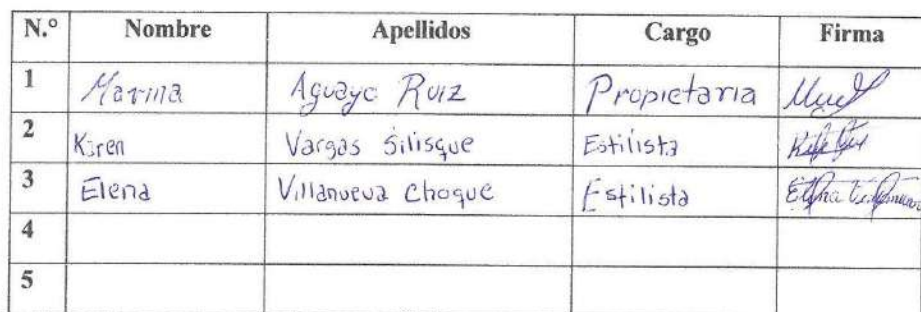 N.° Nombre Apellidos Cargo Firma
1 Marina Aguayo Ruiz Propietaria
2 Karen Vargas Silisque Estilista
3 Elena Villanueva Choque Estilista
4
5